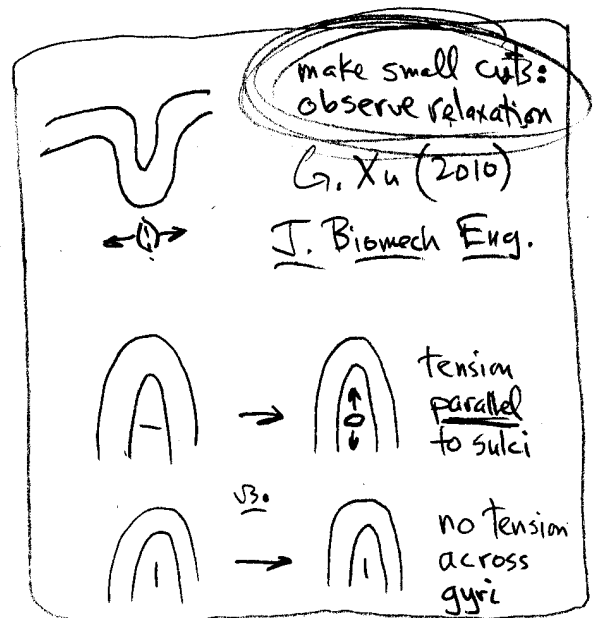 make small cuts:
observe relaxation
G. Xu (2010)
J. Biomech Eng.
tension
parallel
to sulci
vs.
no tension
across
gyri